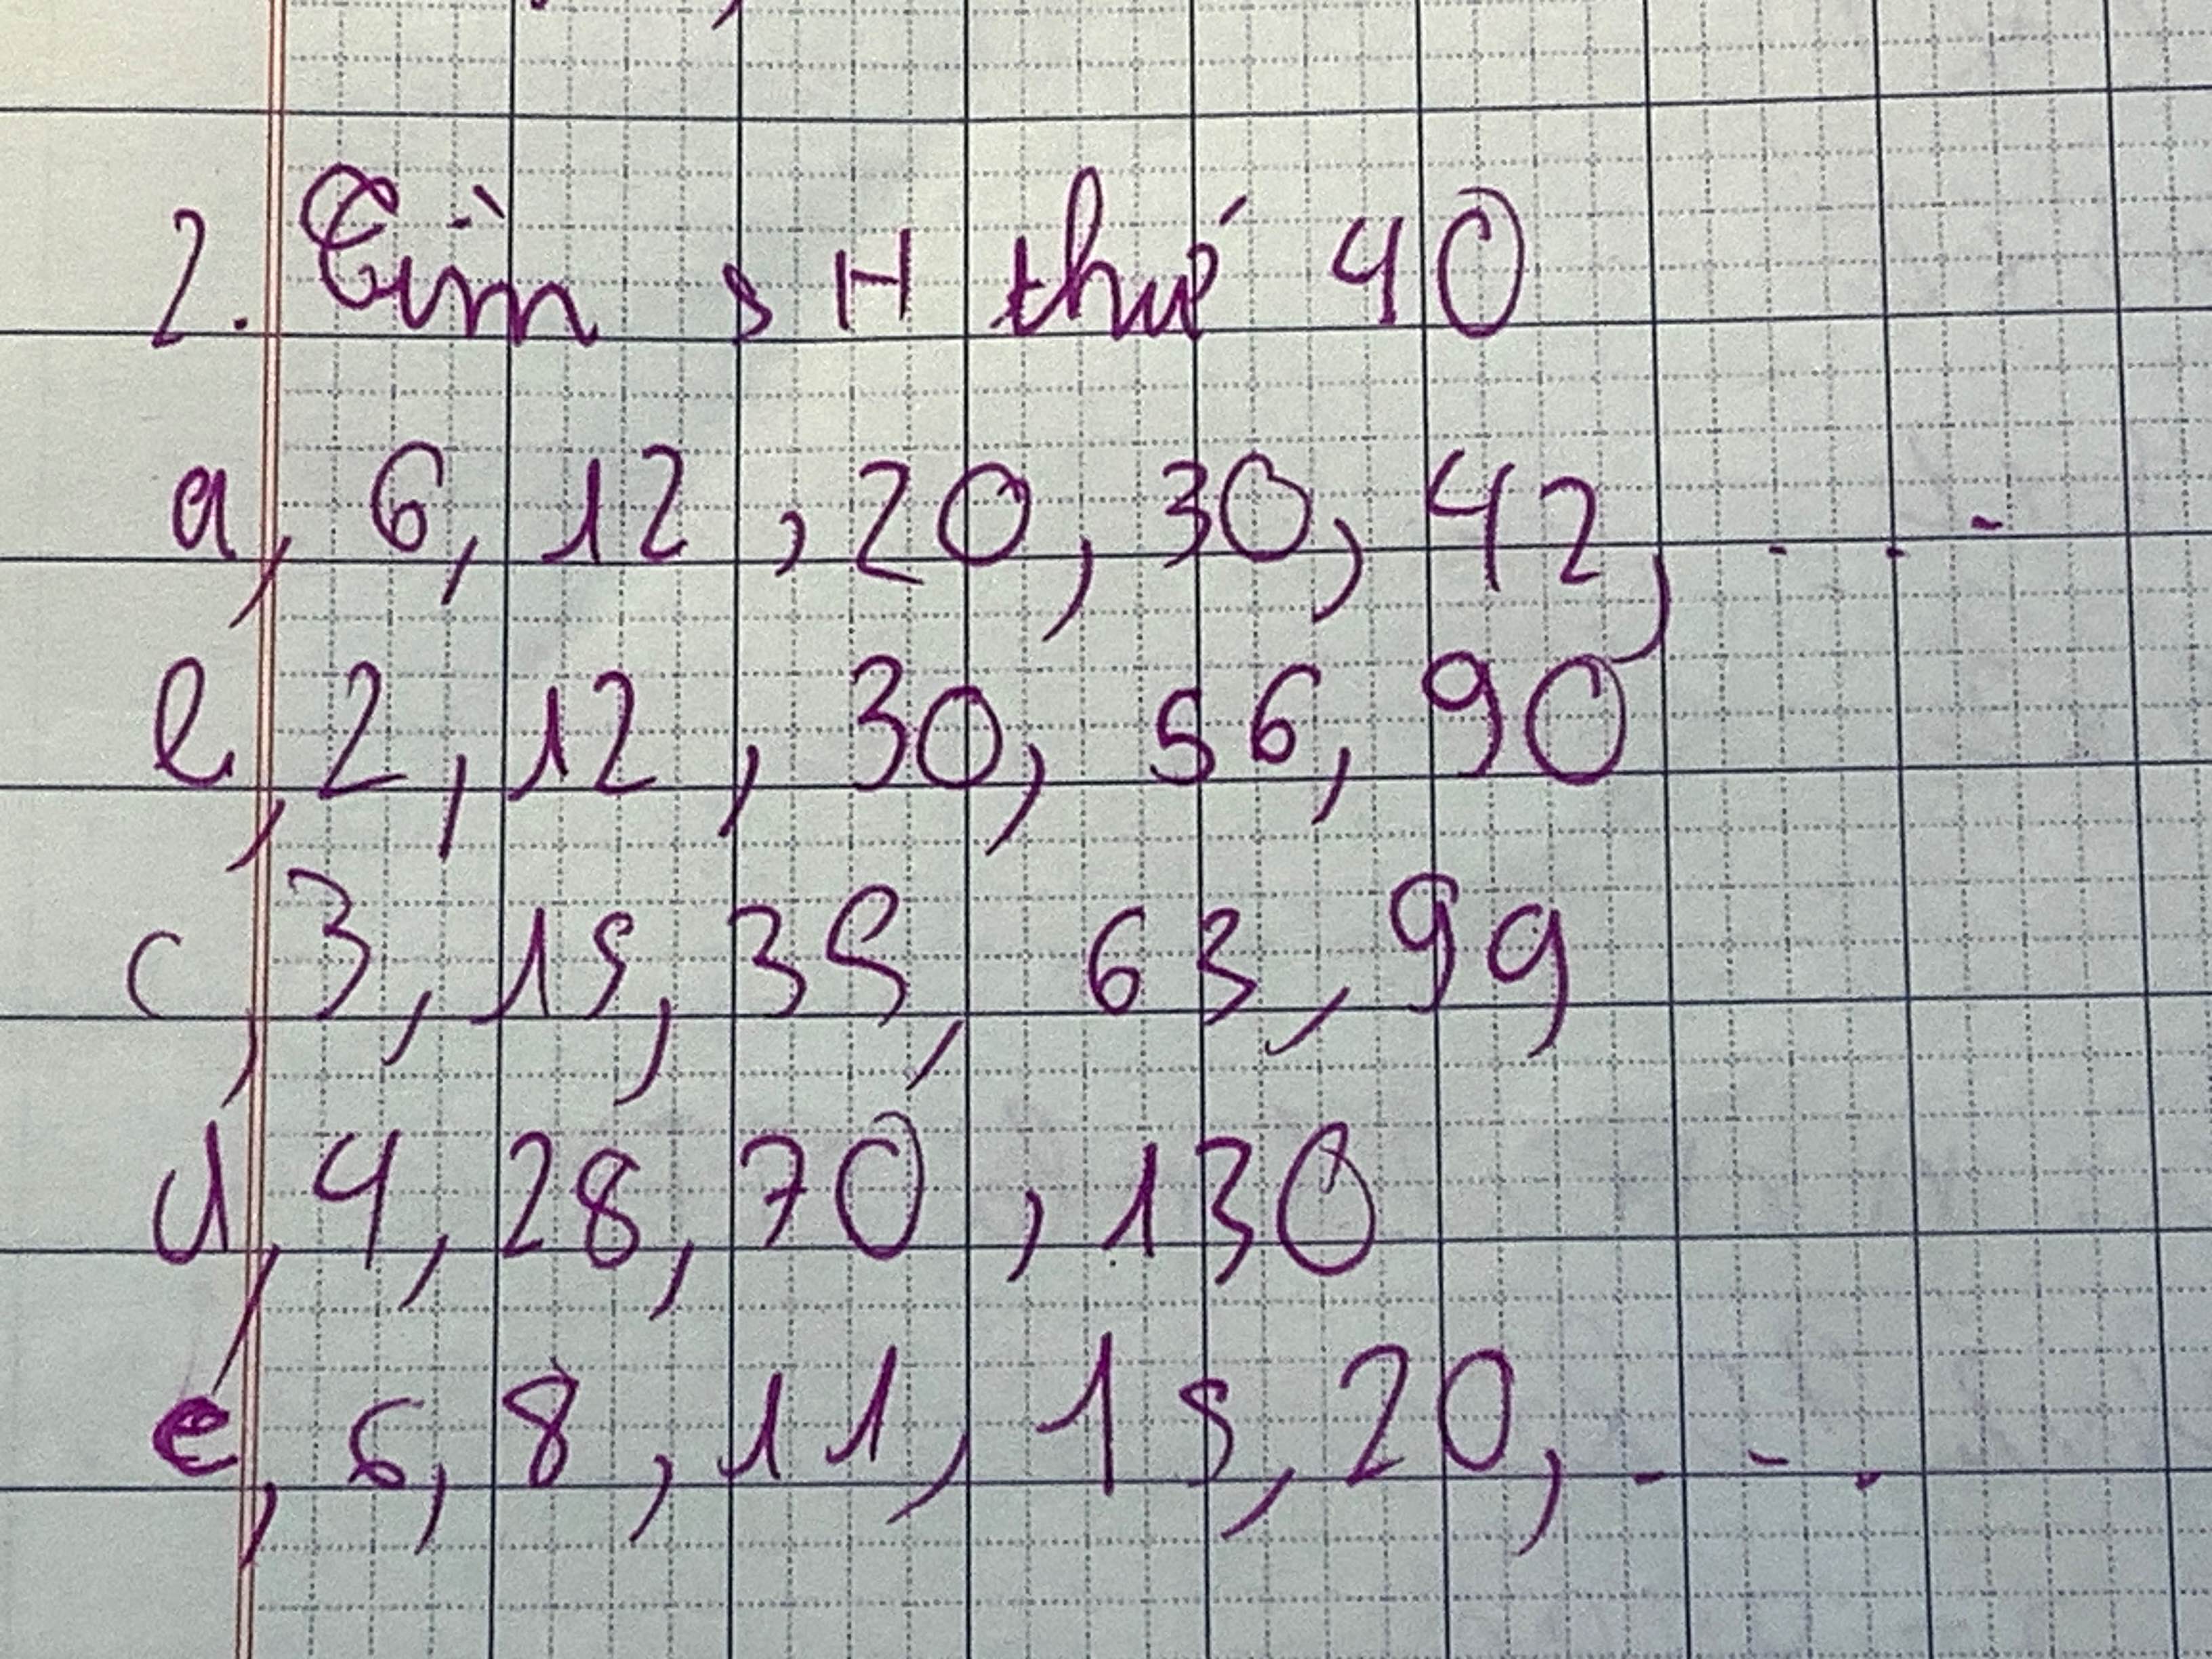 2. Tìm s H thứ 40
a, 6, 12, 20, 30, 42, ...
b, 2, 12, 30, 56, 90
c, 3, 15, 35, 63, 99
d, 4, 28, 70, 130
e, 6, 8, 11, 15, 20, ...